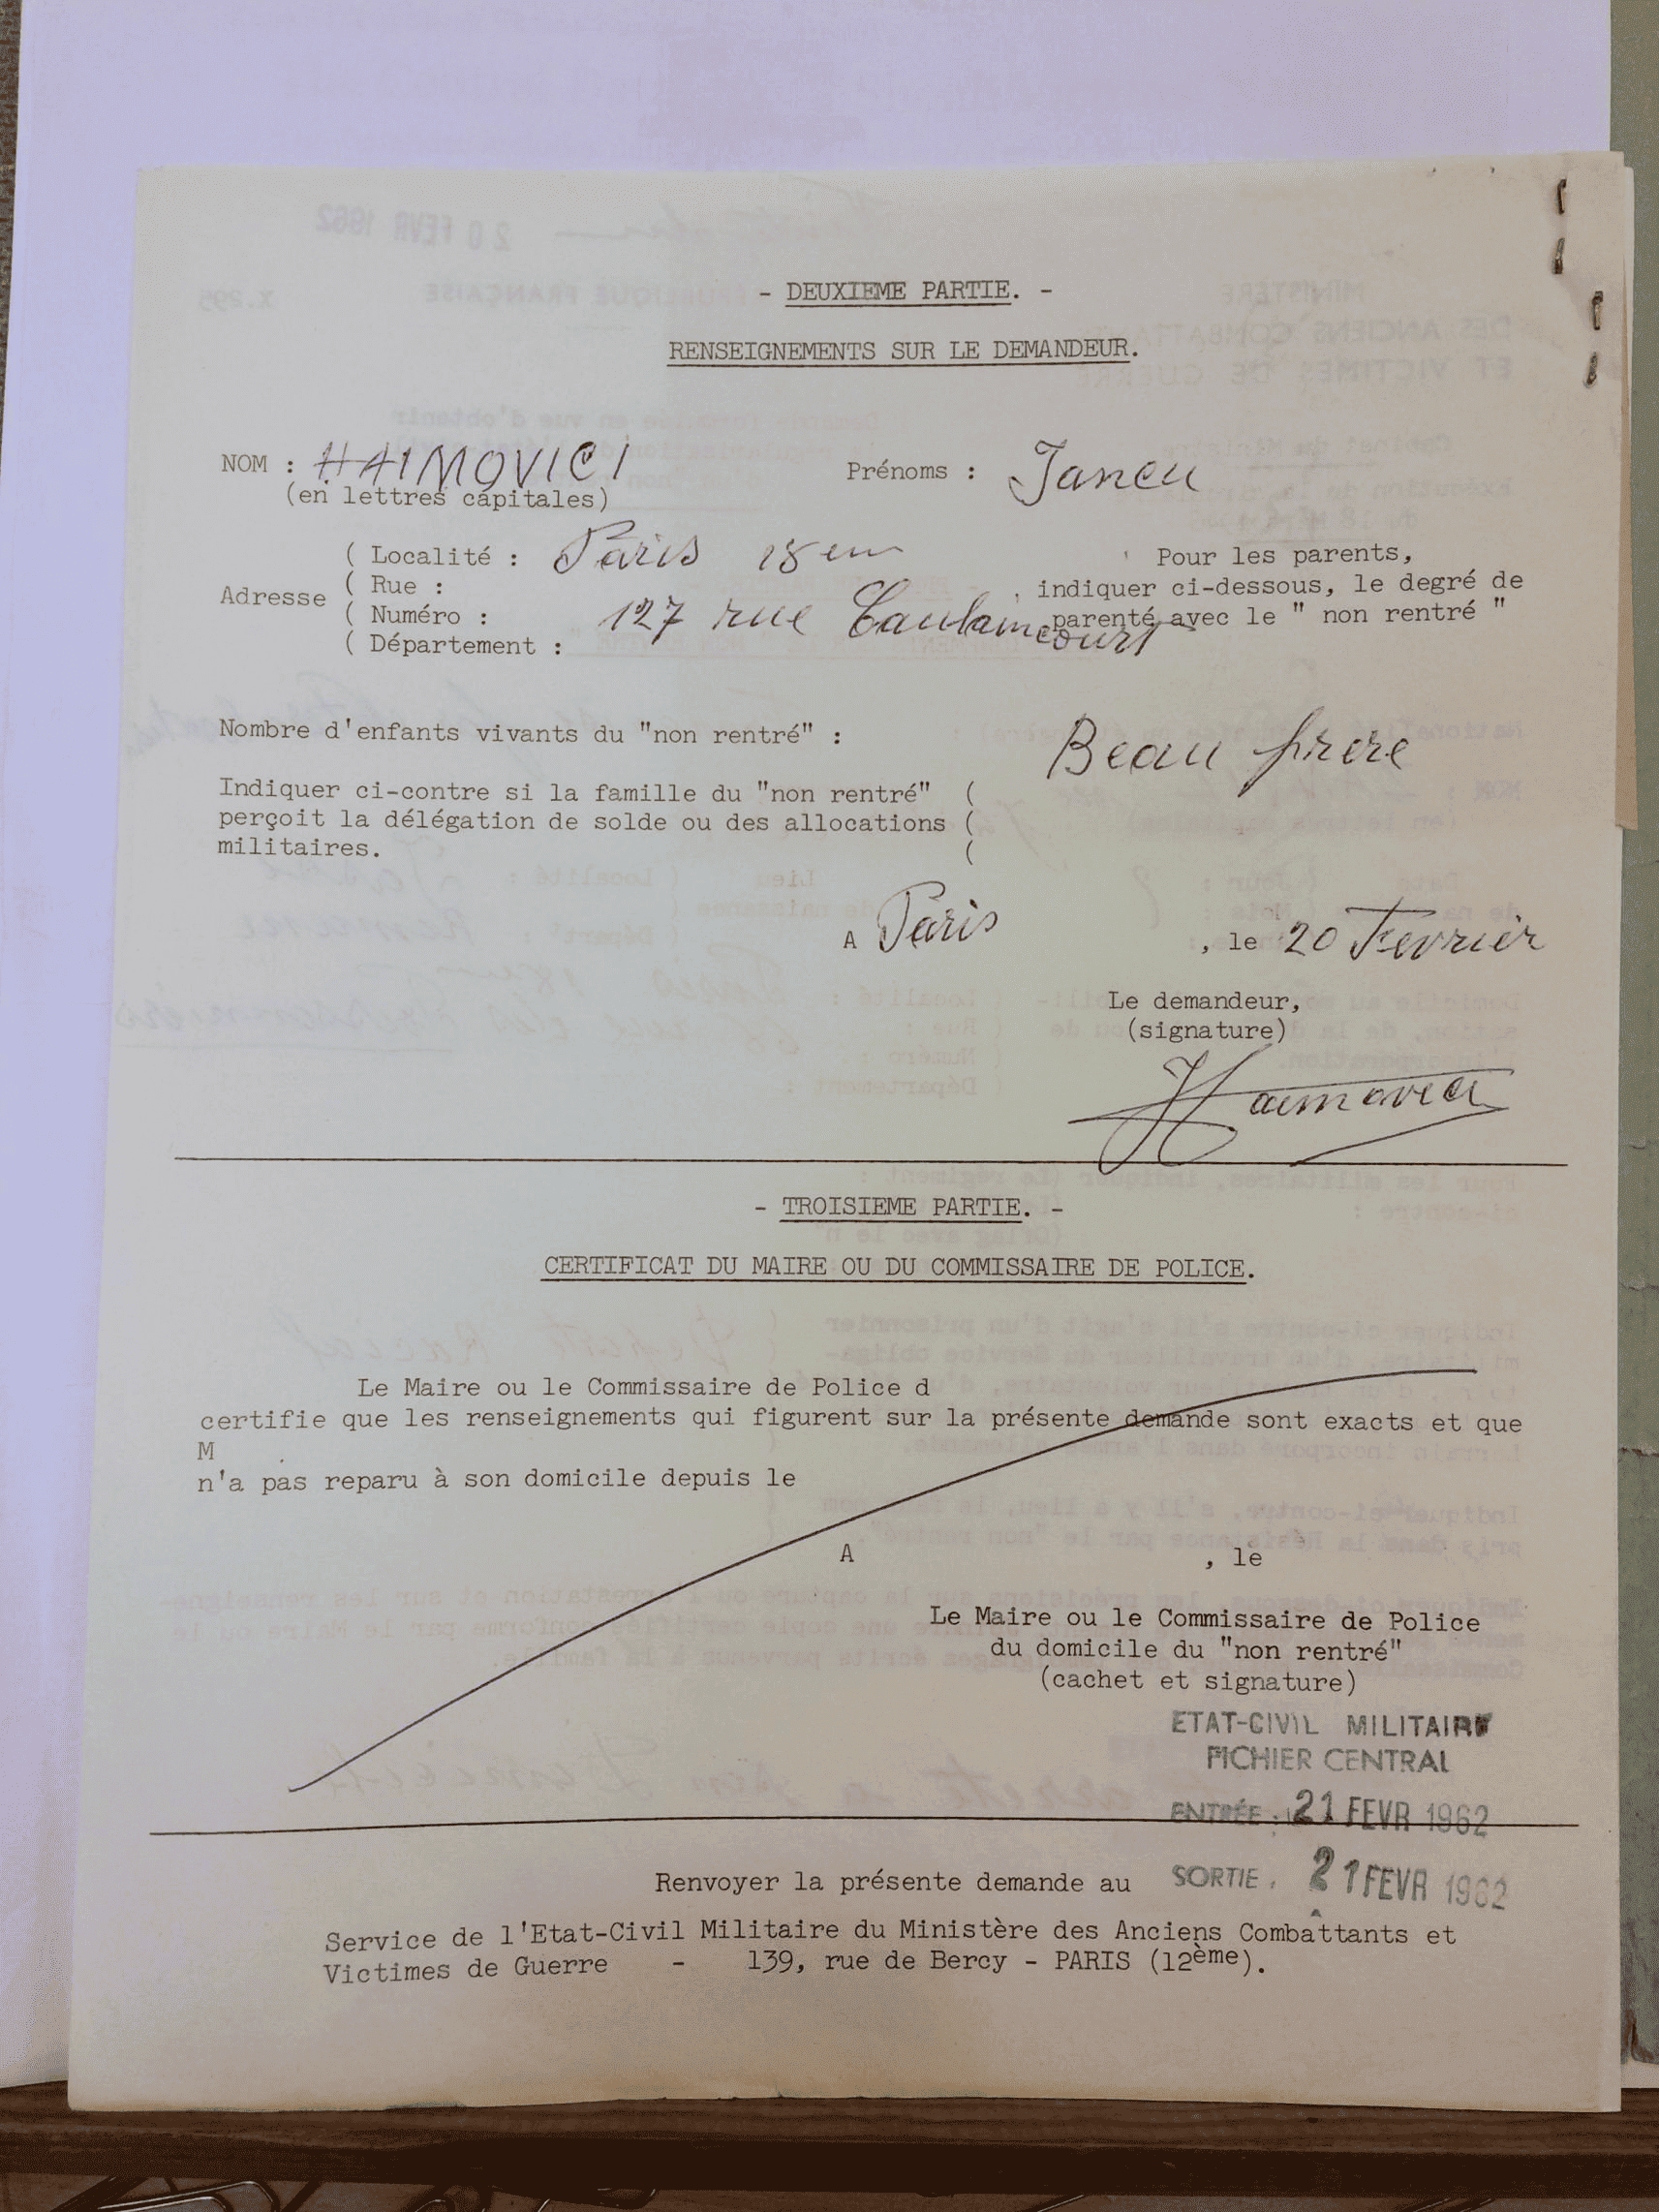 - DEUXIEME PARTIE. -
RENSEIGNEMENTS SUR LE DEMANDEUR.
NOM : HAIMOVICI Prénoms : Jancu
(en lettres capitales)
Adresse
( Localité : Paris 18em
( Rue :
( Numéro : 127 rue Caulaincourt
( Département :
Pour les parents,
indiquer ci-dessous, le degré de
parenté avec le " non rentré "
Nombre d'enfants vivants du "non rentré" :
Beau frere
Indiquer ci-contre si la famille du "non rentré" (
perçoit la délégation de solde ou des allocations (
militaires. (
A Paris , le 20 Fevrier
Le demandeur,
(signature)
Haimovici
- TROISIEME PARTIE. -
CERTIFICAT DU MAIRE OU DU COMMISSAIRE DE POLICE.
Le Maire ou le Commissaire de Police d
certifie que les renseignements qui figurent sur la présente demande sont exacts et que
M
n'a pas reparu à son domicile depuis le
A , le
Le Maire ou le Commissaire de Police
du domicile du "non rentré"
(cachet et signature)
ETAT-CIVIL MILITAIRE
FICHIER CENTRAL
ENTRÉE : 21 FEVR 1962
SORTIE . 21 FEVR 1962
Renvoyer la présente demande au
Service de l'Etat-Civil Militaire du Ministère des Anciens Combattants et
Victimes de Guerre - 139, rue de Bercy - PARIS (12ème).